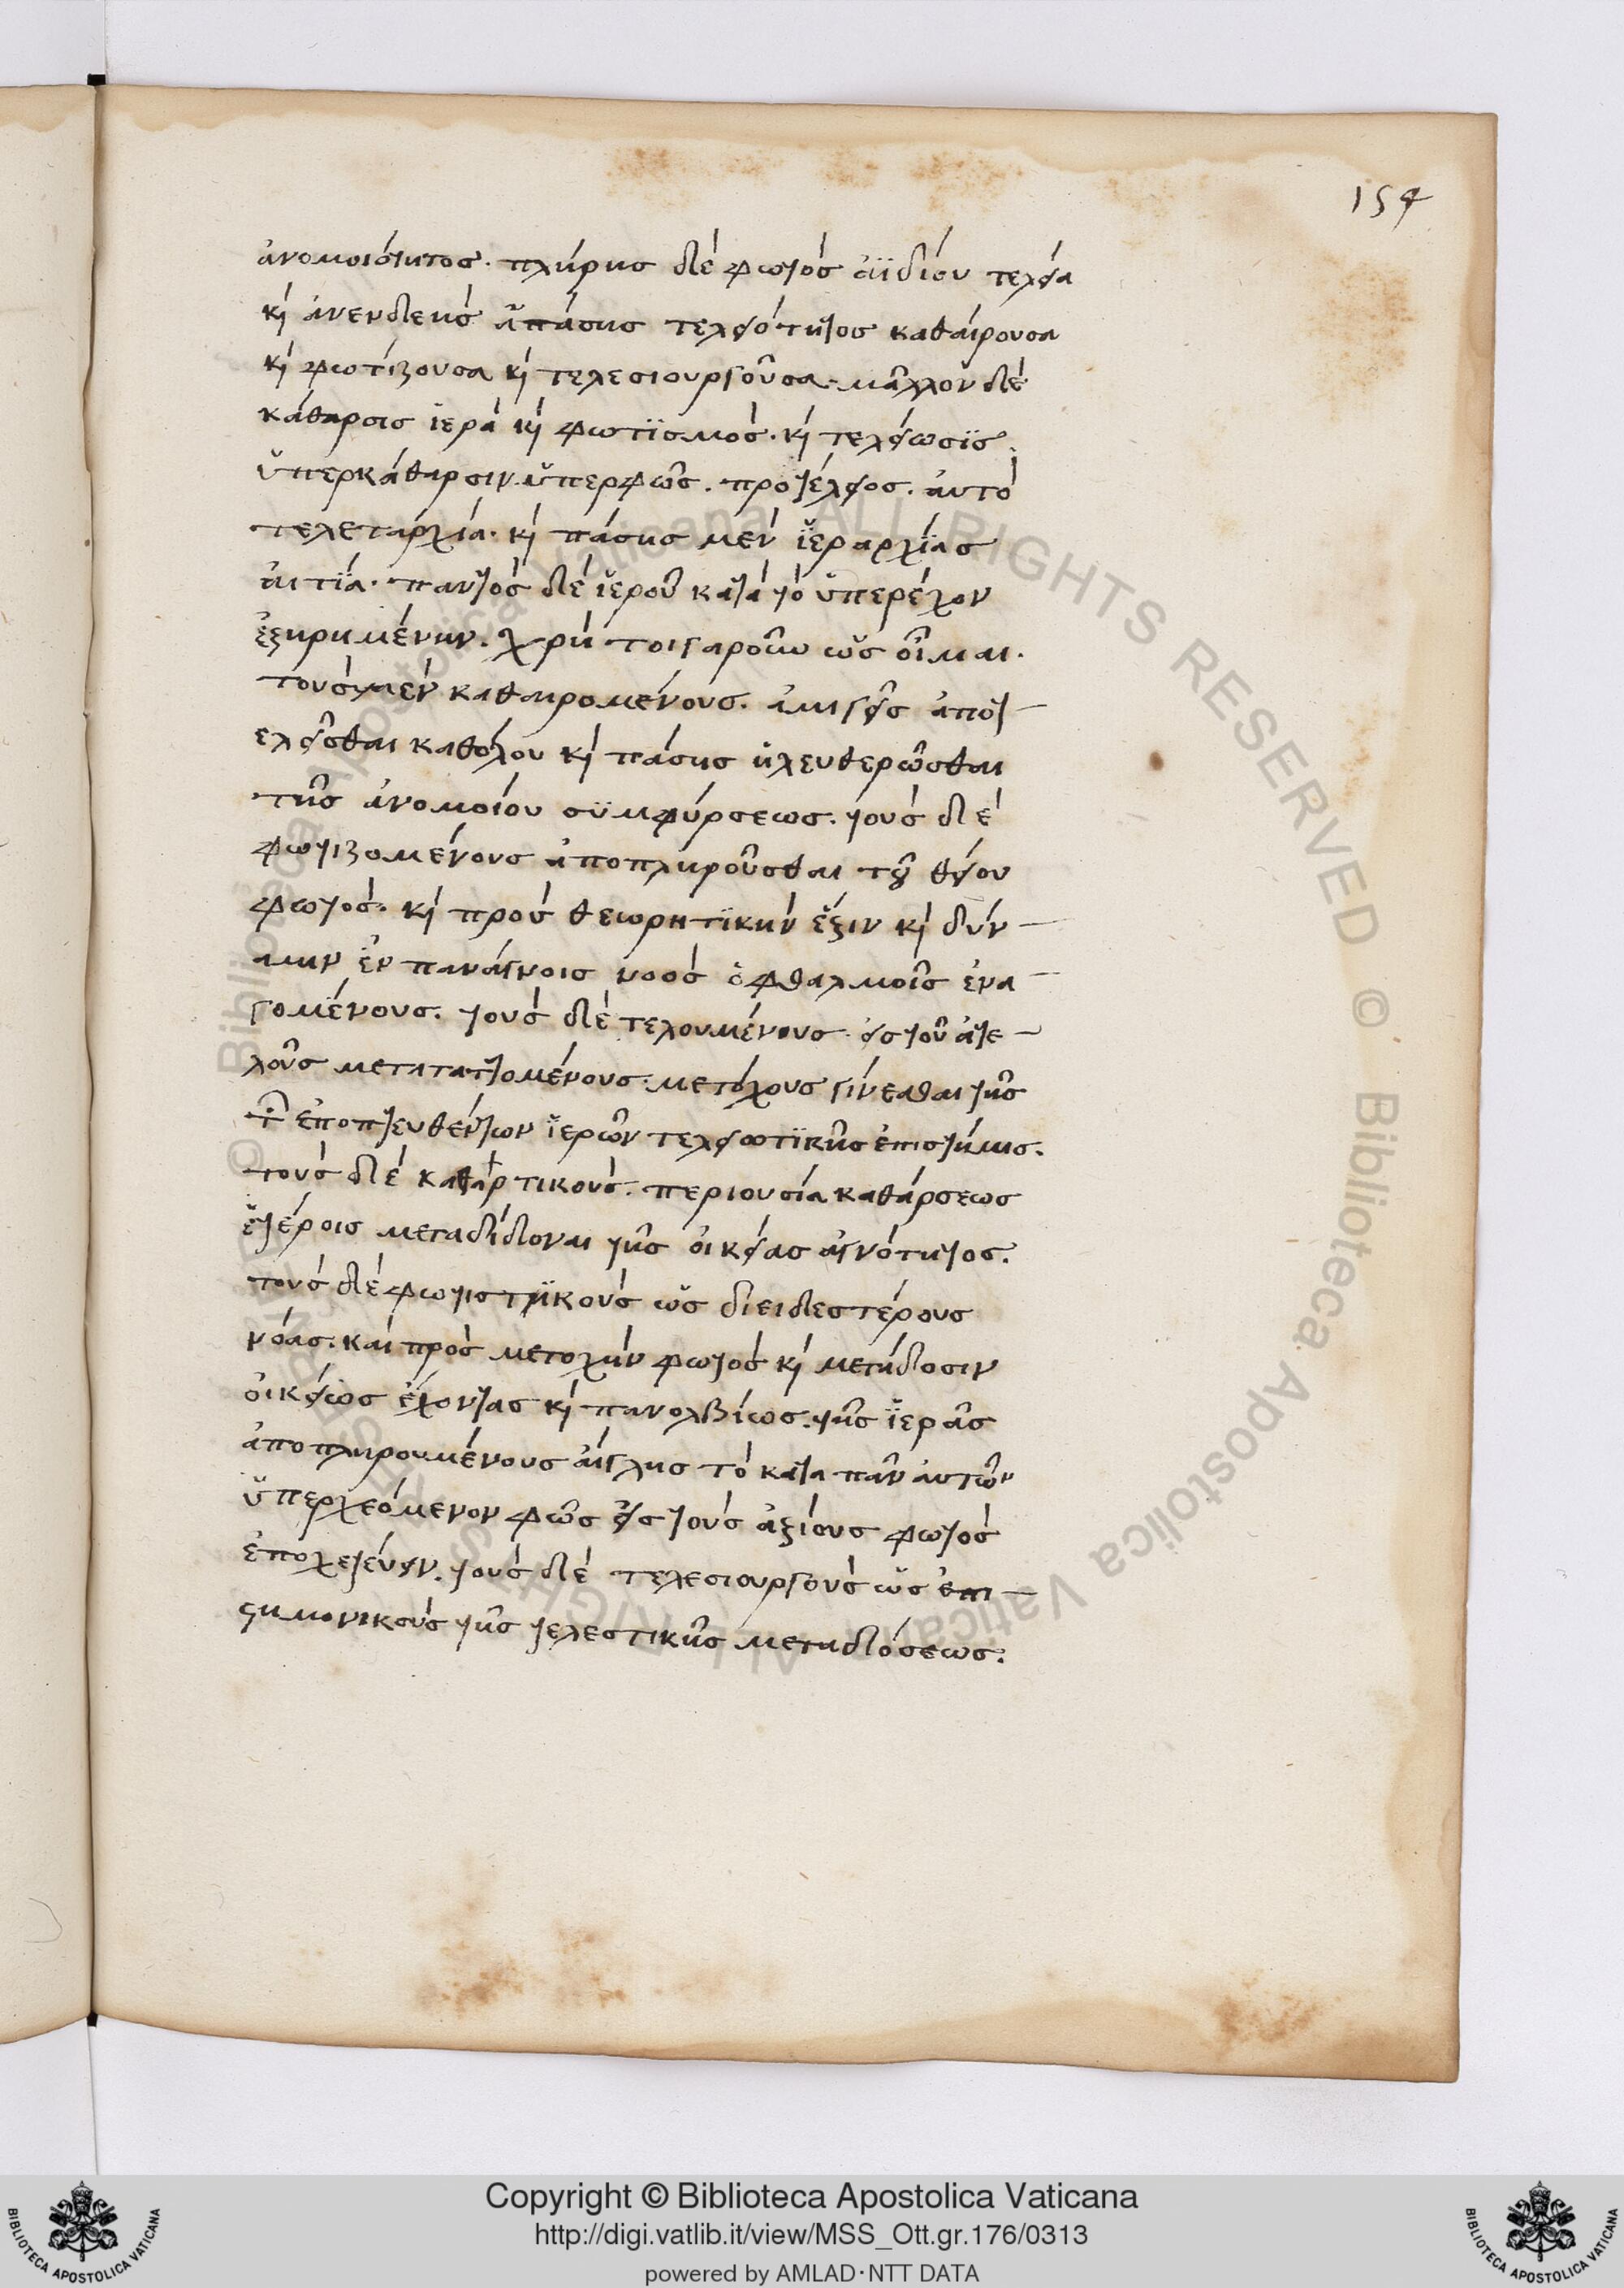 154
ἀνομοιότητος. πλήρης δὲ φωτὸς ἀϊδίου τελεία
κὶ ἀνενδεὴς ἁπάσης τελειότητος καθαίρουσα
κὶ φωτίζουσα κὶ τελεσιουργοῦσα. μᾶλλον δὲ
κάθαρσις ἱερὰ κὶ φωτϊσμὸς. κὶ τελείωσϊς.
ὑπερκάθαρσιν. ὑπερφῶς. προτέλειος. ἀυτὸ
τελεταρχία. κὶ πάσης μὲν ἱεραρχίας
ἀιτία. παντὸς δὲ ἱεροῦ κατὰ τὸ ὑπερέχον
ἐξηρημένην. χρὴ τοιγαροῦν ὡς οἶμαι.
τοὺς μὲν καθαιρομένους. ἀμιγεῖς ἀποτ
ελεῖσθαι καθόλου κὶ πάσης ἠλευθερῶσθαι
τῆς ἀνομοίου σϋμφύρσεως. τοὺς δὲ
φωτιζομένους ἀποπληροῦσθαι τοῦ θείου
φωτὸς. κὶ προὺς θεωρητϊκὴν ἕξιν κὶ δύν
αμιν ἐν πανάγνοις νοὸς ὀφθαλμοῖς ἐνα
γομένους. τοὺς δὲ τελουμένους. ἐς τοῦ ἀτε
λοῦς μετατατομένους. μετόχους γίνεσθαι τῆς
τῶν ἐποπτευθέντων ἱερῶν τελειωτϊκῆς ἐπιστήμης.
τοὺς δὲ καθαρτικοὺς. περιουσία καθάρσεως
ἑτέροις μεταδίδοναι τῆς οἰκείας ἁγνότητος.
τοὺς δὲ φωτιστϊκοὺς ὡς διειδεστέρους
νόας. καὶ πρὸς μετοχὴν φωτὸς κὶ μετάδοσιν
οἰκείως ἔχοντας κὶ πανολβίως. τῆς ἱερᾶς
ἀποπληρουμένους ἀίγλης τὸ κατα πᾶν ἀυτῶν
ὑπερχεόμενον φῶς εἰς τοὺς ἀξίους φωτὸς
ἐποχετεύειν. τοὺς δὲ τελεσιουργοὺς ὡς ἐπι
στημονικοὺς τῆς τελεστικῆς μεταδόσεως.
Copyright © Biblioteca Apostolica Vaticana
http://digi.vatlib.it/view/MSS_Ott.gr.176/0313
powered by AMLAD·NTT DATA
BIBLIOTECA APOSTOLICA VATICANA
BIBLIOTECA APOSTOLICA VATICANA